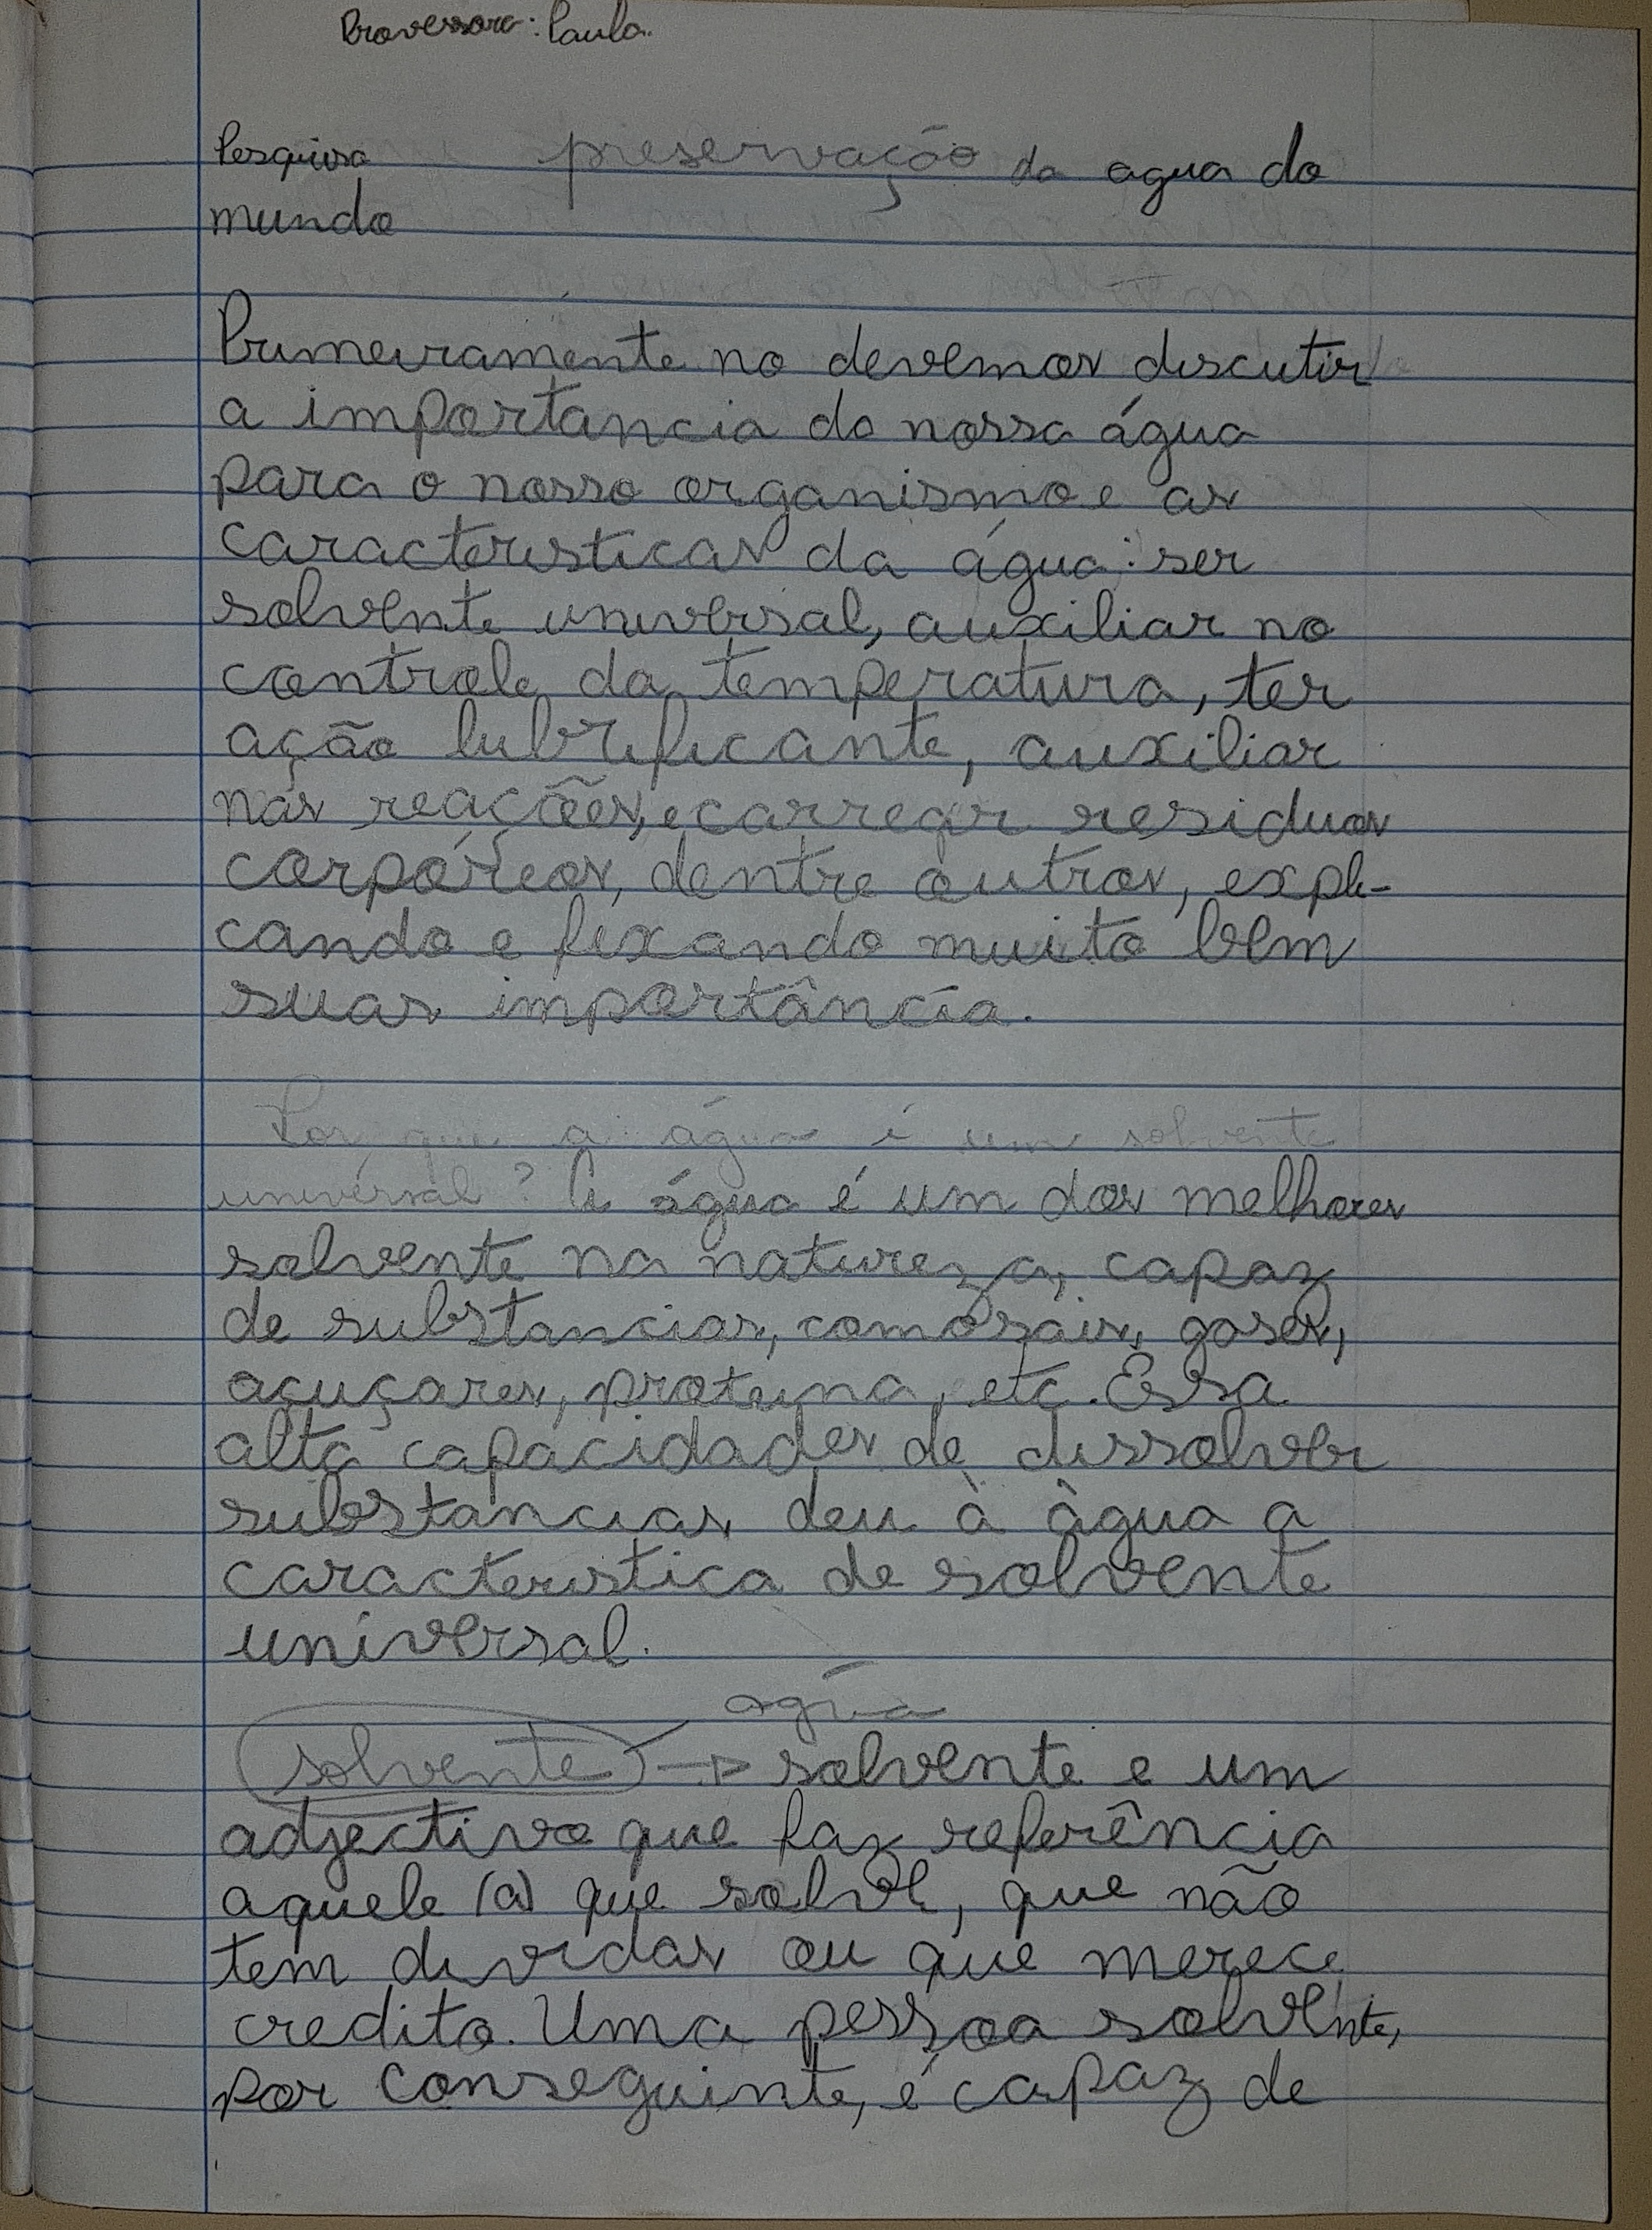 Provessora: Paula.
Pesquisa preservação da agua do
mundo
Primeiramente no devemos discutir
a importancia da nossa água
para o nosso organismo e as
caracteristicas da água: ser
solvente universal, auxiliar no
controle da temperatura, ter
ação lubrificante, auxiliar
nas reações, e carregar residuos
corpóreos, dentre outros, expli-
cando e fixando muito bem
suas importância.
Por que a água é um solvente
universal? A água é um dos melhores
solvente na natureza, capaz
de substancias, como sais, gases,
açuçares, proteina, etc. Essa
alta capacidades de dissolver
substancias deu à àgua a
caracteristica de solvente
universal.
agúa
solvente → solvente e um
adjectivo que faz referência
aquele (a) que solve, que não
tem dividas ou que merece
credito. Uma pessoa solvente,
por conseguinte, é capaz de